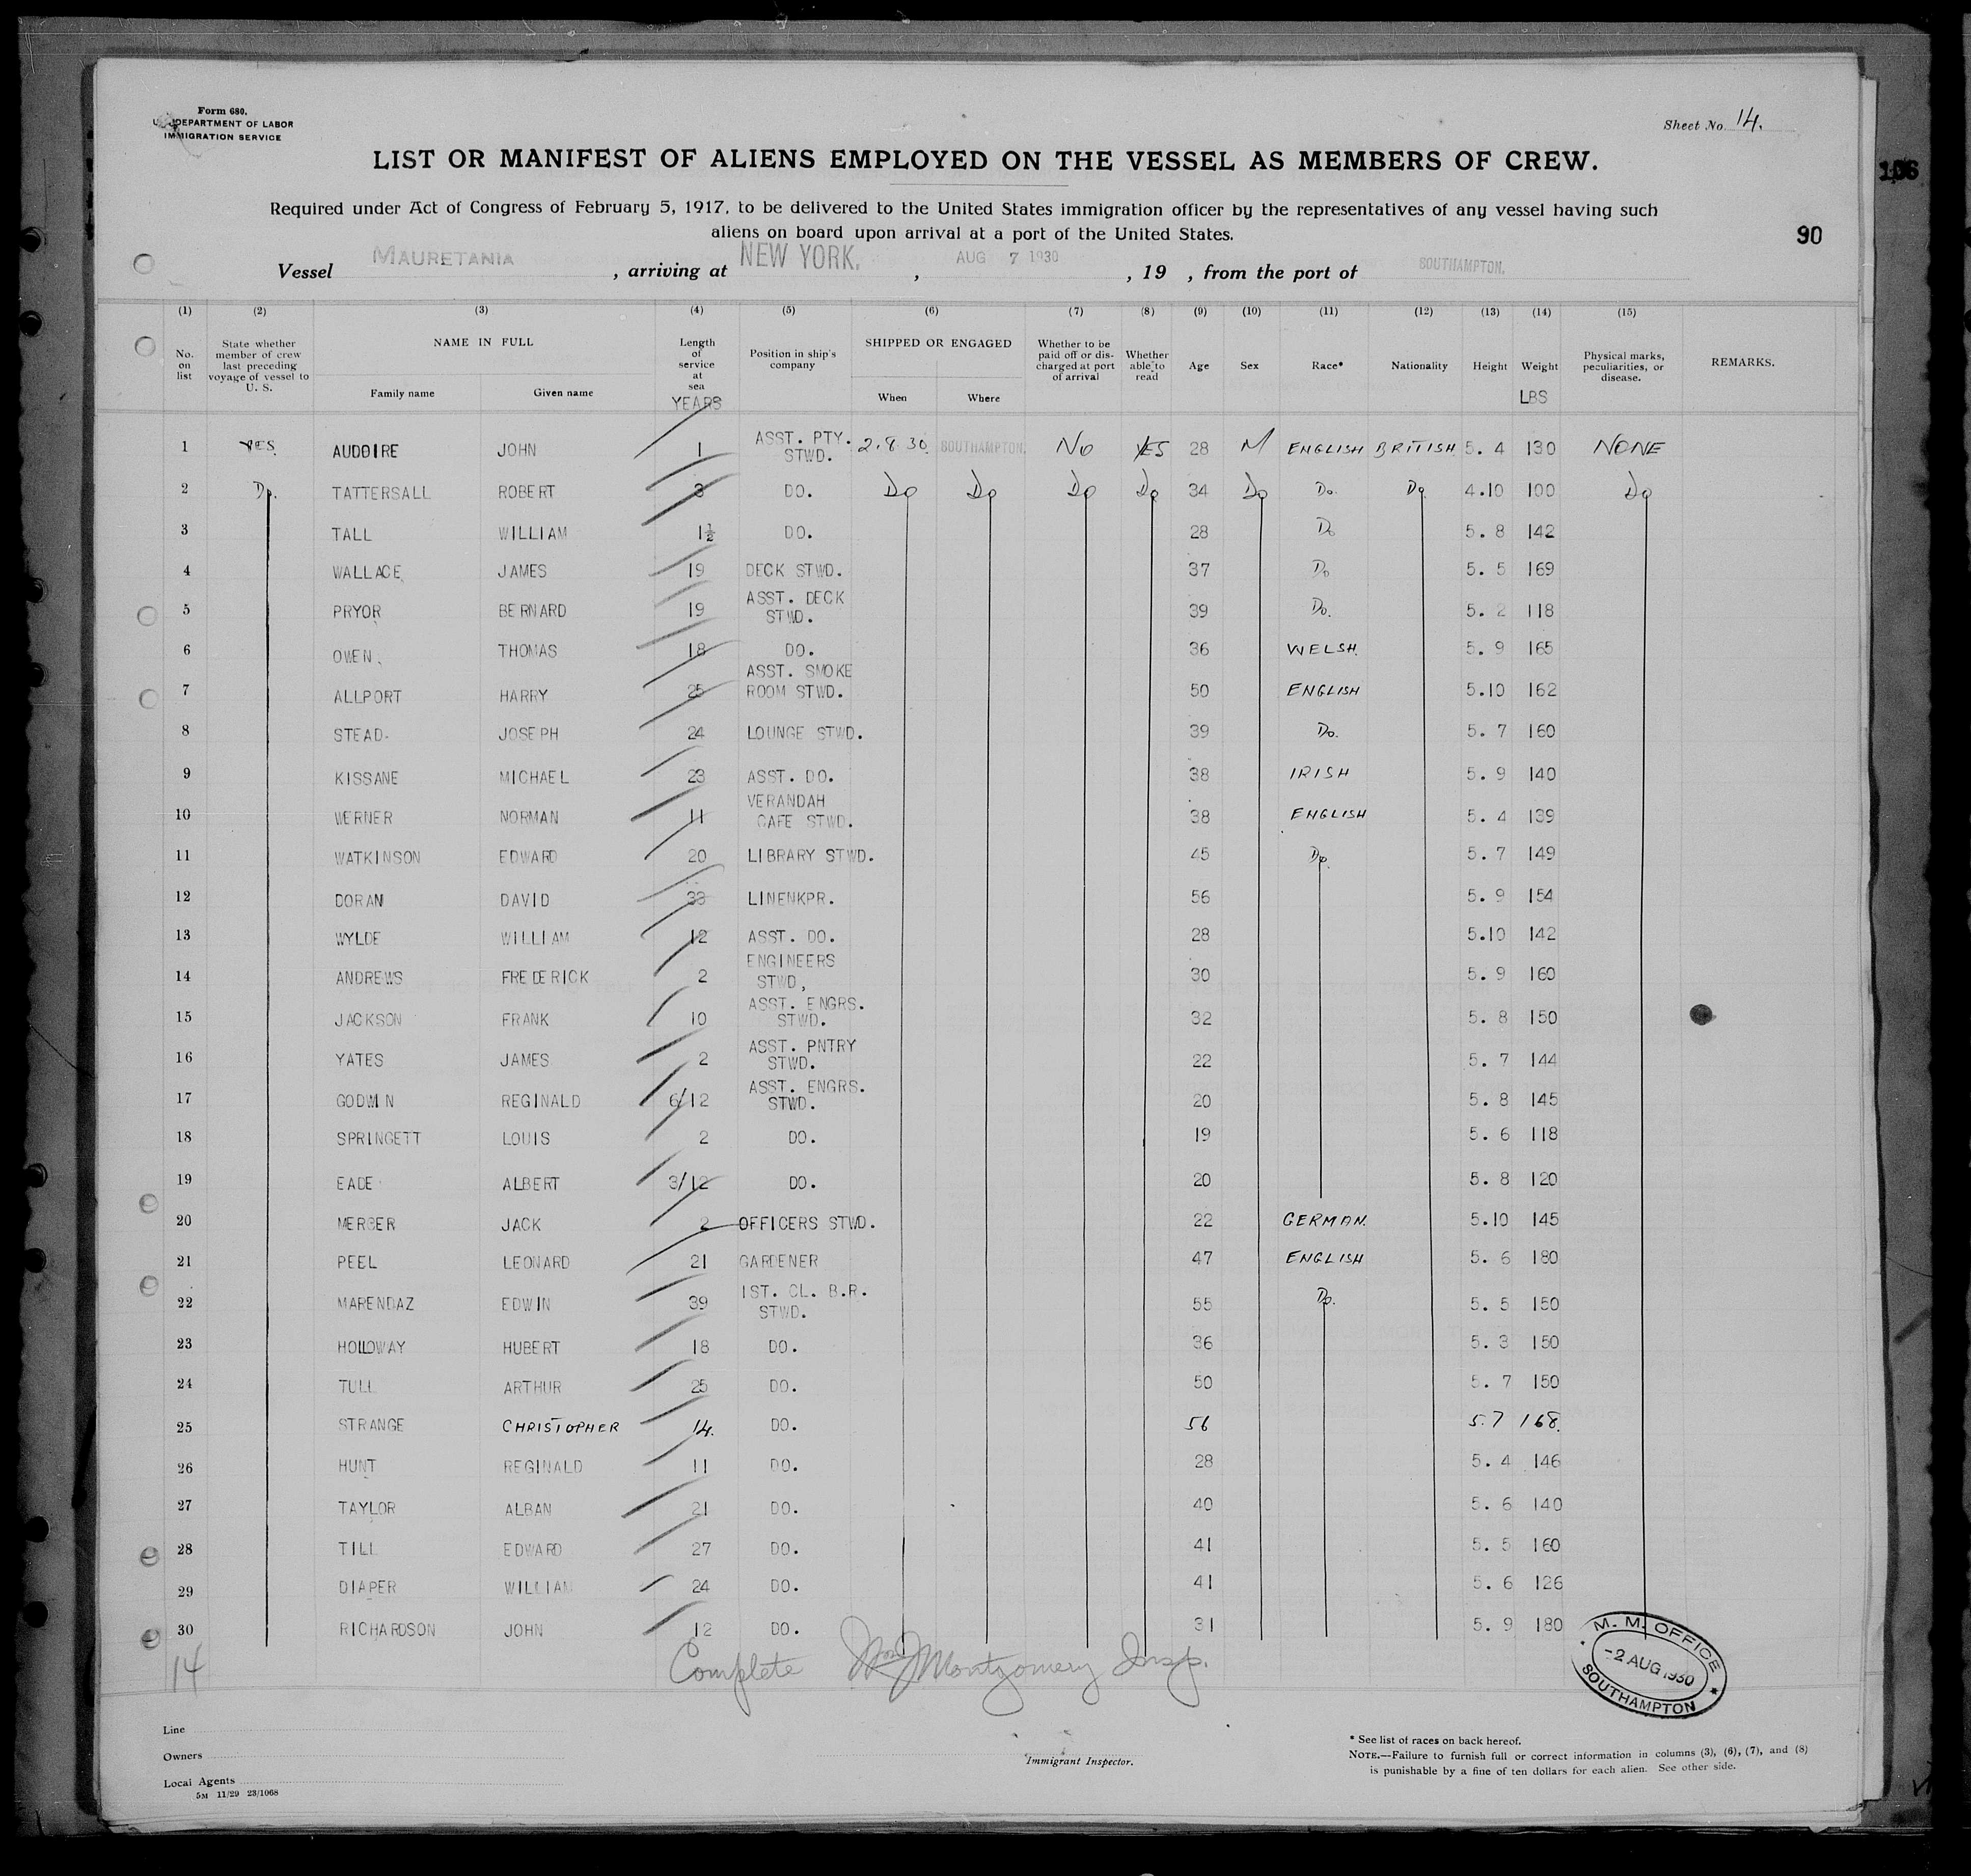 Form 680.
DEPARTMENT OF LABOR
IMMIGRATION SERVICE
Sheet No. 14.
LIST OR MANIFEST OF ALIENS EMPLOYED ON THE VESSEL AS MEMBERS OF CREW.
106
Required under Act of Congress of February 5, 1917, to be delivered to the United States immigration officer by the representatives of any vessel having such
aliens on board upon arrival at a port of the United States.
90
Vessel MAURETANIA, arriving at NEW YORK, , AUG 7 1930, 19 , from the port of SOUTHAMPTON,
(1) (2) (3) (4) (5) (6) (7) (8) (9) (10) (11) (12) (13) (14) (15)
No. on list
State whether member of crew last preceding voyage of vessel to U. S.
NAME IN FULL
Family name Given name
Length of service at sea YEARS
Position in ship's company
SHIPPED OR ENGAGED
When Where
Whether to be paid off or discharged at port of arrival
Whether able to read
Age
Sex
Race*
Nationality
Height
Weight LBS
Physical marks, peculiarities, or disease.
REMARKS.
1 YES AUDOIRE JOHN 1 ASST. PTY. STWD. 2.8.30 SOUTHAMPTON. NO YES 28 M ENGLISH BRITISH 5. 4 130 NONE
2 Do. TATTERSALL ROBERT 3 DO. Do Do Do Do 34 Do Do. Do 4.10 100 Do
3 TALL WILLIAM 1½ DO. 28 Do 5. 8 142
4 WALLACE JAMES 19 DECK STWD. 37 Do 5. 5 169
5 PRYOR BERNARD 19 ASST. DECK STWD. 39 Do. 5. 2 118
6 OWEN THOMAS 18 DO. 36 WELSH. 5. 9 165
7 ALLPORT HARRY 25 ASST. SMOKE ROOM STWD. 50 ENGLISH 5.10 162
8 STEAD JOSEPH 24 LOUNGE STWD. 39 Do. 5. 7 160
9 KISSANE MICHAEL 23 ASST. DO. 38 IRISH 5. 9 140
10 WERNER NORMAN 11 VERANDAH CAFE STWD. 38 ENGLISH 5. 4 139
11 WATKINSON EDWARD 20 LIBRARY STWD. 45 Do. 5. 7 149
12 DORAN DAVID 33 LINENKPR. 56 5. 9 154
13 WYLDE WILLIAM 12 ASST. DO. 28 5.10 142
14 ANDREWS FREDERICK 2 ENGINEERS STWD, 30 5. 9 160
15 JACKSON FRANK 10 ASST. ENGRS. STWD. 32 5. 8 150
16 YATES JAMES 2 ASST. PNTRY STWD. 22 5. 7 144
17 GODWIN REGINALD 6/12 ASST. ENGRS. STWD. 20 5. 8 145
18 SPRINGETT LOUIS 2 DO. 19 5. 6 118
19 EADE ALBERT 3/12 DO. 20 5. 8 120
20 MERGER JACK 2 OFFICERS STWD. 22 GERMAN. 5.10 145
21 PEEL LEONARD 21 GARDENER 47 ENGLISH 5. 6 180
22 MARENDAZ EDWIN 39 1ST. CL. B.R. STWD. 55 Do. 5. 5 150
23 HOLLOWAY HUBERT 18 DO. 36 5. 3 150
24 TULL ARTHUR 25 DO. 50 5. 7 150
25 STRANGE CHRISTOPHER 14. DO. 56 5.7 168.
26 HUNT REGINALD 11 DO. 28 5. 4 146
27 TAYLOR ALBAN 21 DO. 40 5. 6 140
28 TILL EDWARD 27 DO. 41 5. 5 160
29 DIAPER WILLIAM 24 DO. 41 5. 6 126
30 RICHARDSON JOHN 12 DO. 31 5. 9 180
14 Complete Wm J Montgomery Insp.
M. M. OFFICE
-2 AUG 1930
SOUTHAMPTON
Line
Owners
Local Agents
5M 11/29 23/1068
Immigrant Inspector.
* See list of races on back hereof.
NOTE.—Failure to furnish full or correct information in columns (3), (6), (7), and (8)
is punishable by a fine of ten dollars for each alien. See other side.